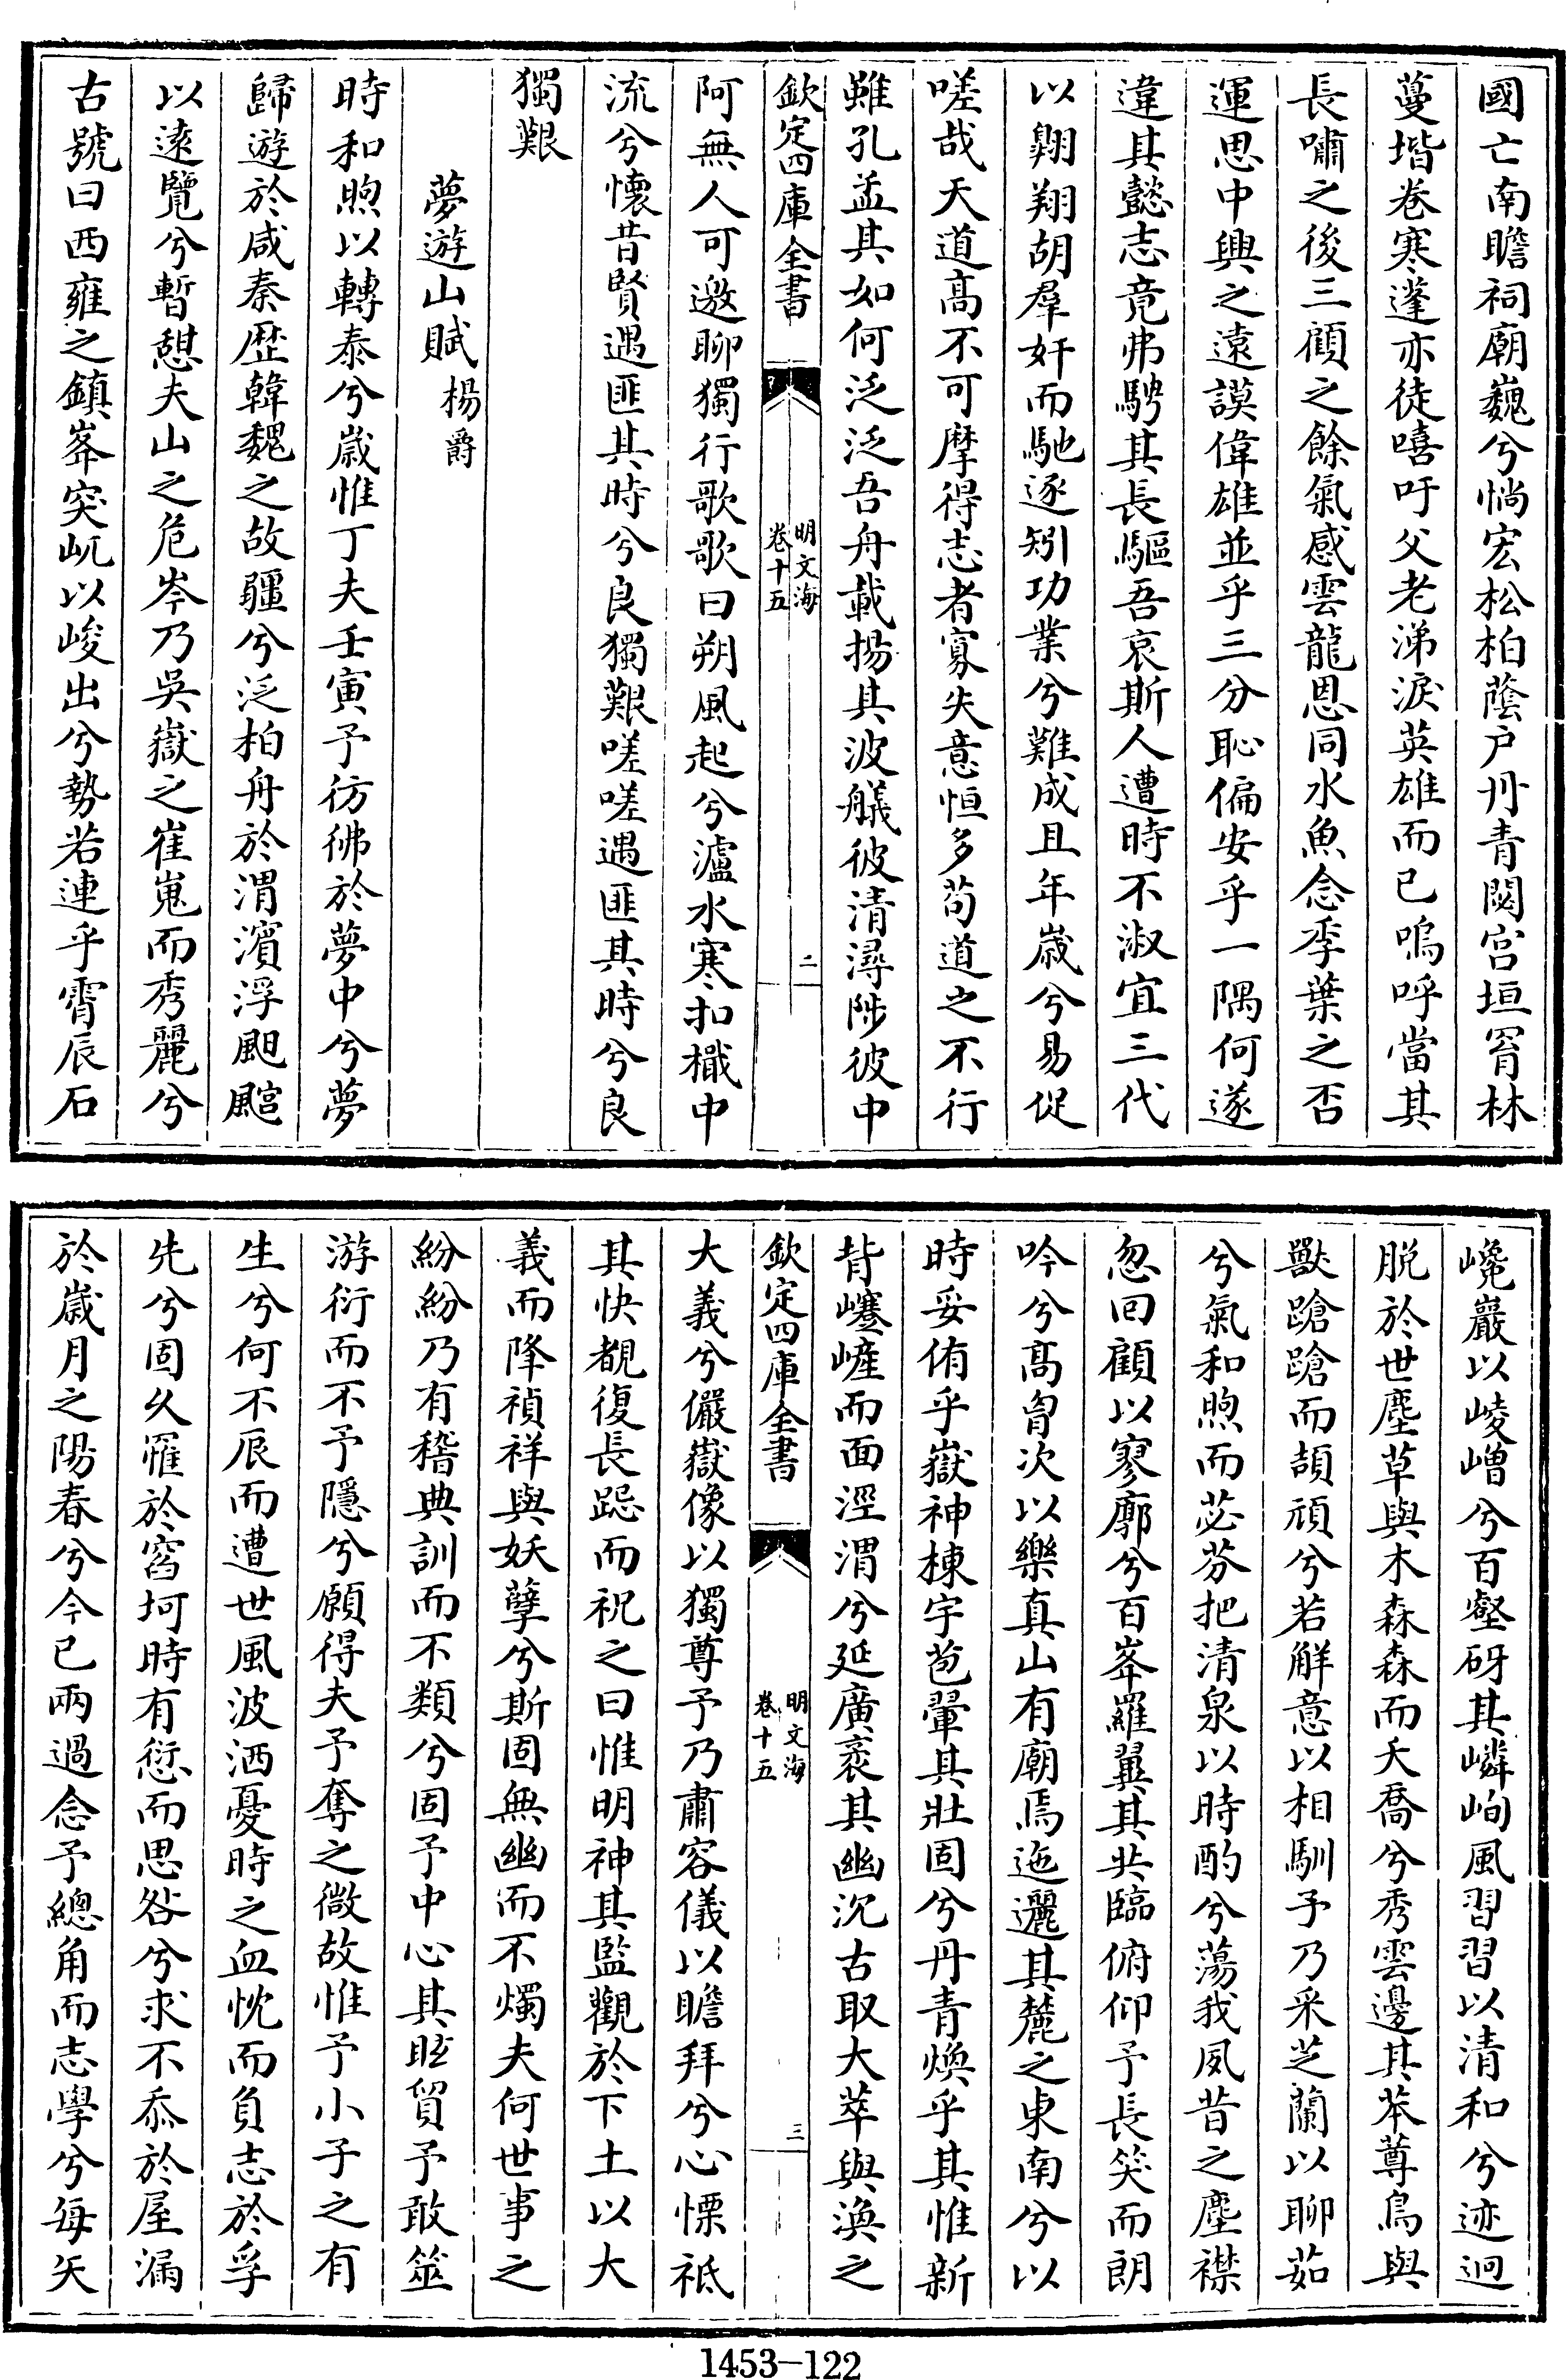 國亡南瞻祠廟巍兮惝宏松柏蔭户丹青閟宫垣罥林
蔓堦卷寒蓬亦徒嘻吁父老涕淚英雄而已嗚呼當其
長嘯之後三顧之餘氣感雲龍恩同水魚念季葉之否
運思中興之遠謨偉雄並乎三分恥偏安乎一隅何遂
違其懿志竟弗騁其長驅吾哀斯人遭時不淑宜三代
以翺翔胡羣奸而馳逐矧功業兮難成且年嵗兮易促
嗟哉天道髙不可摩得志者寡失意恒多苟道之不行
雖孔孟其如何泛泛吾舟載揚其波艤彼清潯陟彼中
欽定四庫全書
明文海
卷十五
二
阿無人可邀聊獨行歌歌曰朔風起兮瀘水寒扣檝中
流兮懷昔賢遇匪其時兮良獨艱嗟嗟遇匪其時兮良
獨艱
夢遊山賦 楊爵
時和煦以轉泰兮嵗惟丁夫壬寅予彷彿於夢中兮夢
歸遊於咸秦歴韓魏之故疆兮泛柏舟於渭濱浮颶䬎
以逺覽兮暫憩夫山之危岑乃吳嶽之崔嵬而秀麗兮
古號曰西雍之鎮峯突屼以峻出兮勢若連乎霄辰石
巉巖以崚嶒兮百壑砑其嶙峋風習習以清和兮迹迥
脱於世塵草與木森森而夭喬兮秀雲邊其苯䔿鳥與
獸蹌蹌而頡頏兮若解意以相馴予乃采芝蘭以聊茹
兮氣和煦而苾芬把清泉以時酌兮蕩我夙昔之塵襟
忽回顧以寥廓兮百峯羅翼其共臨俯仰予長笑而朗
吟兮髙胷次以樂真山有廟焉迤邐其麓之東南兮以
時妥侑乎嶽神棟宇苞翬其壯固兮丹青煥乎其惟新
背㠐嵼而面涇渭兮延廣袤其幽沉古取大萃與渙之
欽定四庫全書
明文海
卷十五
三
大義兮儼嶽像以獨尊予乃肅容儀以瞻拜兮心慄祗
其快覩復長跽而祝之曰惟明神其監觀於下土以大
義而降禎祥與妖孽兮斯固無幽而不燭夫何世事之
紛紛乃有稽典訓而不類兮固予中心其眩貿予敢筮
游衍而不予隱兮願得夫予奪之微故惟予小子之有
生兮何不辰而遭世風波洒憂時之血忱而負志於孚
先兮固久罹於窞坷時有愆而思咎兮求不忝於屋漏
於嵗月之陽春兮今已兩過念予總角而志學兮每矢
1453—122